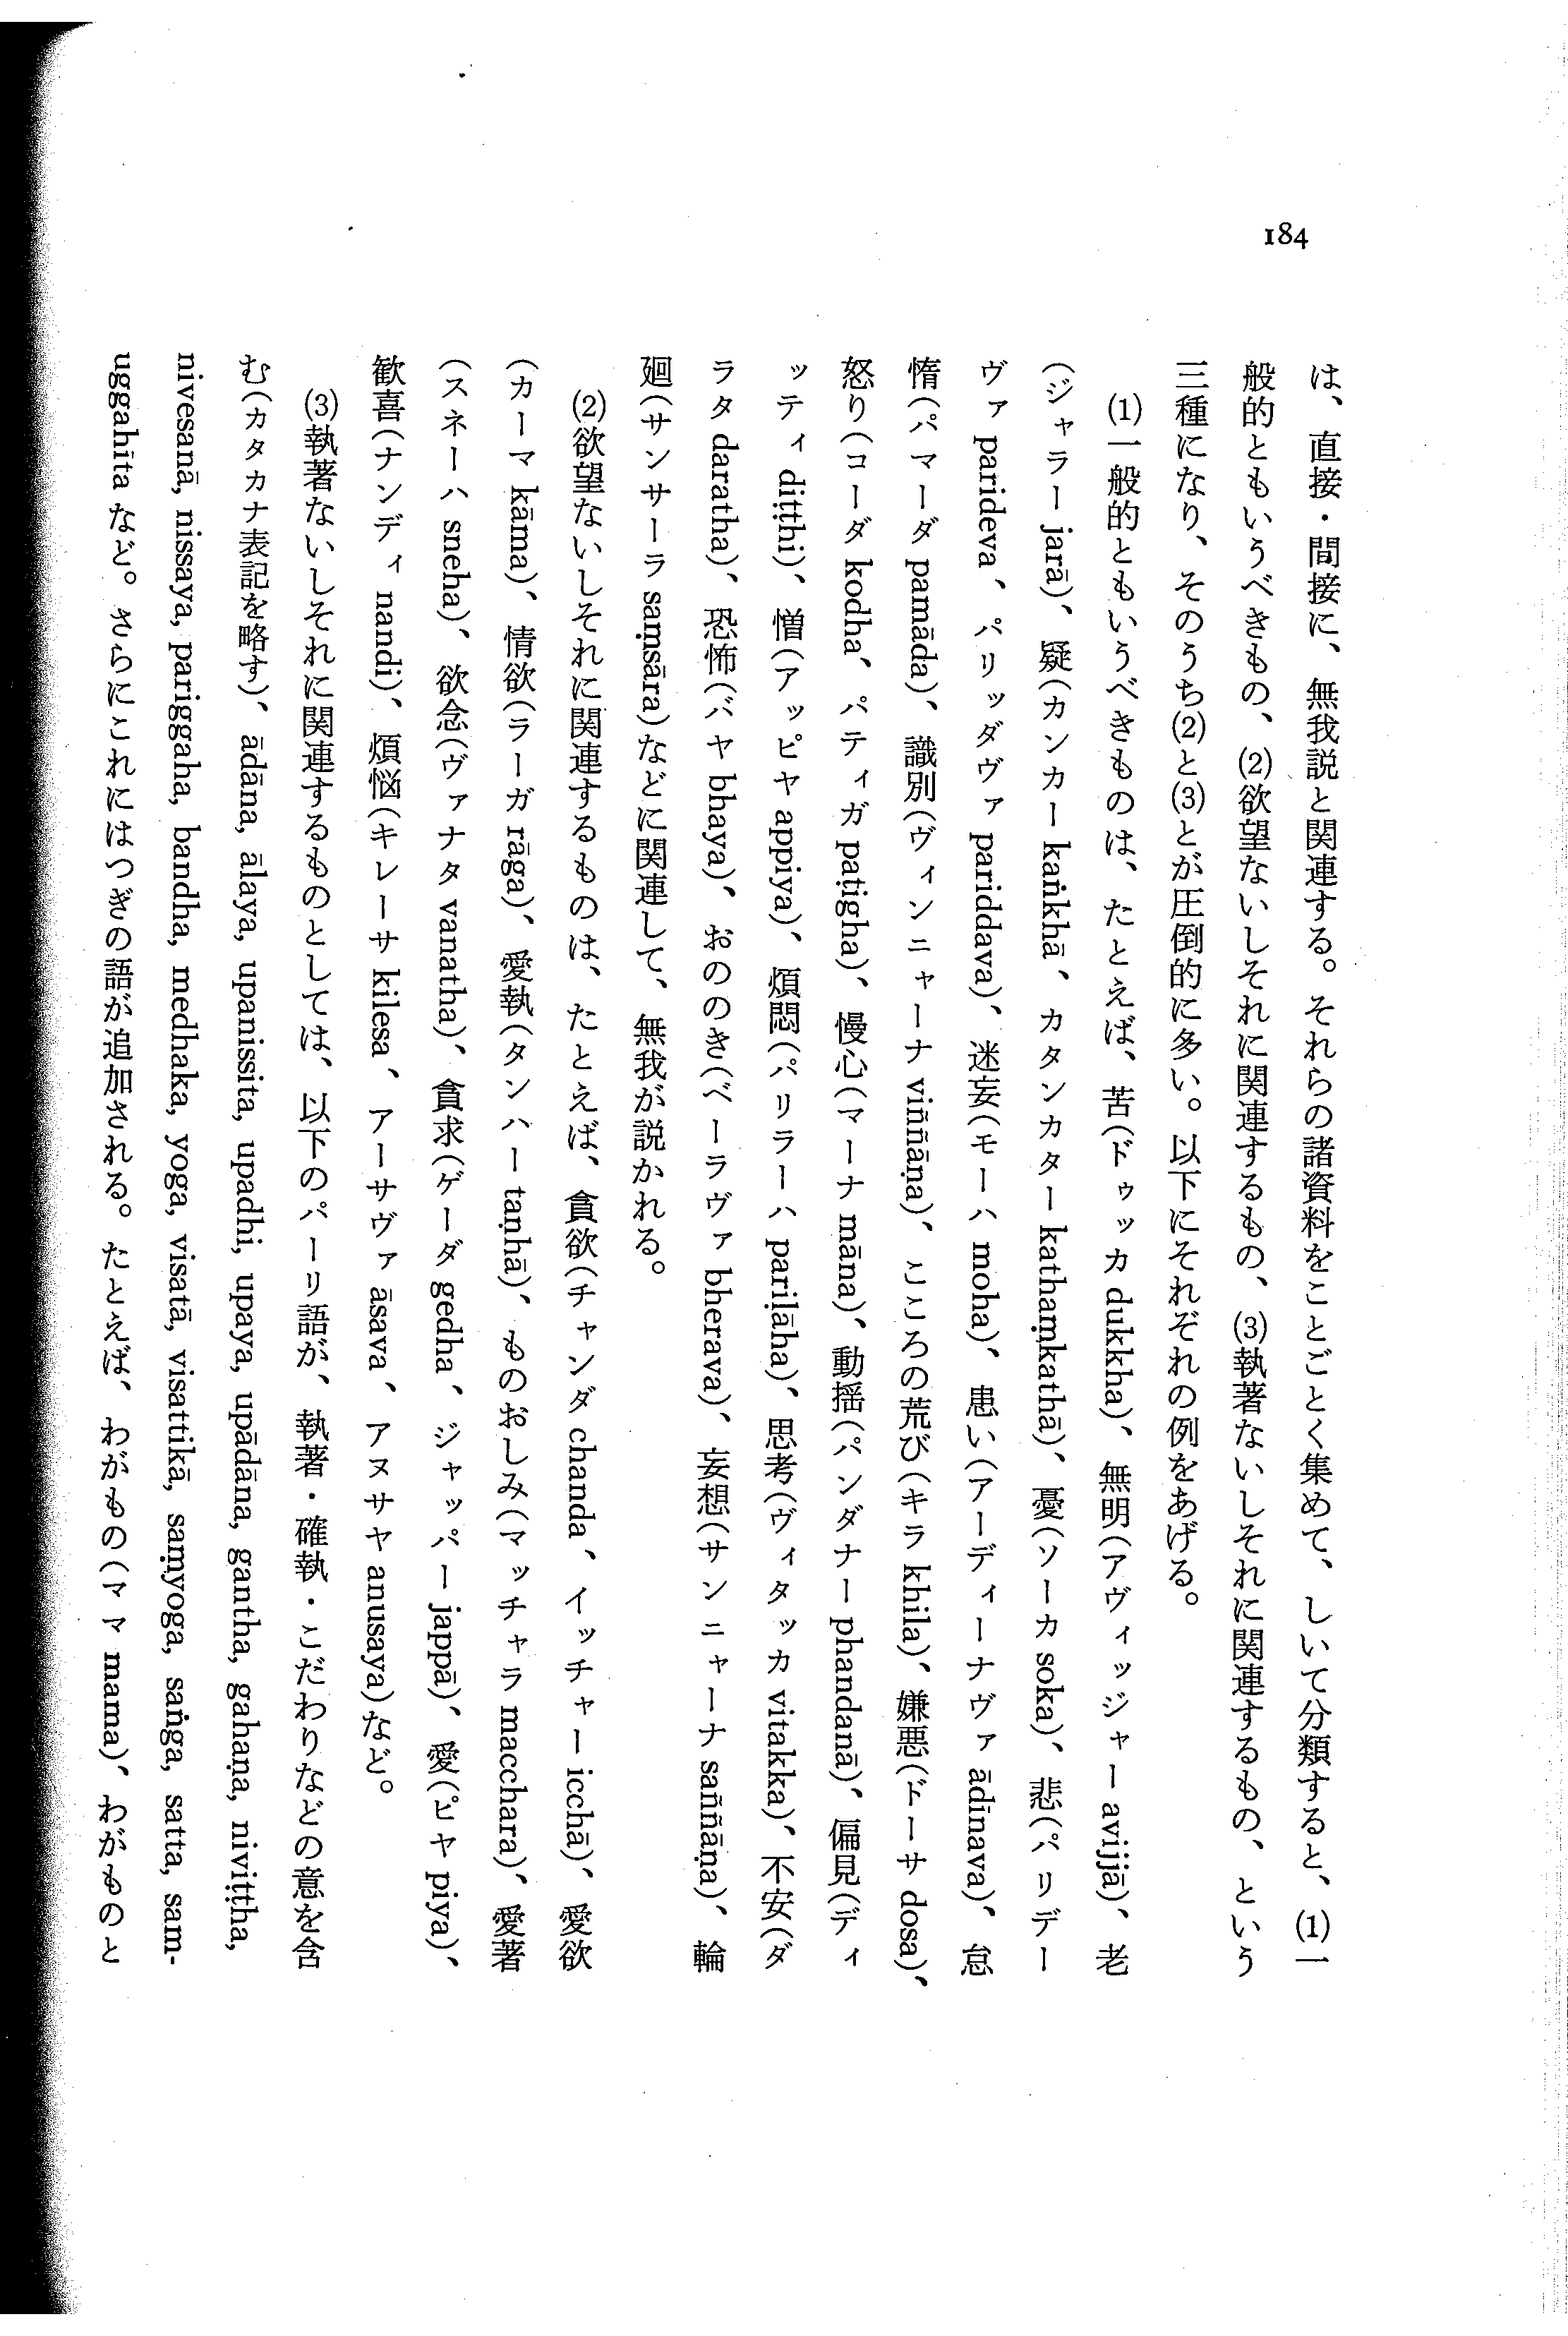 184
は、直接・間接に、無我説と関連する。それらの諸資料をことごとく集めて、しいて分類すると、(1)一
般的ともいうべきもの、(2)欲望ないしそれに関連するもの、(3)執著ないしそれに関連するもの、という
三種になり、そのうち(2)と(3)とが圧倒的に多い。以下にそれぞれの例をあげる。
(1)一般的ともいうべきものは、たとえば、苦(ドゥッカ dukkha)、無明(アヴィッジャー avijjā)、老
(ジャラー jarā)、疑(カンカー kaṅkhā、カタンカター kathaṃkathā)、憂(ソーカ soka)、悲(パリデー
ヴァ parideva、パリッダヴァ pariddava)、迷妄(モーハ moha)、患い(アーディーナヴァ ādīnava)、怠
惰(パマーダ pamāda)、識別(ヴィンニャーナ viññāṇa)、こころの荒び(キラ khila)、嫌悪(ドーサ dosa)、
怒り(コーダ kodha、パティガ paṭigha)、慢心(マーナ māna)、動揺(パンダナー phandanā)、偏見(ディ
ッティ diṭṭhi)、憎(アッピヤ appiya)、煩悶(パリラーハ pariḷāha)、思考(ヴィタッカ vitakka)、不安(ダ
ラタ daratha)、恐怖(バヤ bhaya)、おののき(ベーラヴァ bherava)、妄想(サンニャーナ saññāṇa)、輪
廻(サンサーラ saṃsāra)などに関連して、無我が説かれる。
(2)欲望ないしそれに関連するものは、たとえば、貪欲(チャンダ chanda、イッチャー icchā)、愛欲
(カーマ kāma)、情欲(ラーガ rāga)、愛執(タンハー taṇhā)、ものおしみ(マッチャラ macchara)、愛著
(スネーハ sneha)、欲念(ヴァナタ vanatha)、貪求(ゲーダ gedha、ジャッパー jappā)、愛(ピヤ piya)、
歓喜(ナンディ nandi)、煩悩(キレーサ kilesa、アーサヴァ āsava、アヌサヤ anusaya)など。
(3)執著ないしそれに関連するものとしては、以下のパーリ語が、執著・確執・こだわりなどの意を含
む(カタカナ表記を略す)、ādāna, ālaya, upanissita, upadhi, upaya, upādāna, gantha, gahaṇa, niviṭṭha,
nivesanā, nissaya, pariggaha, bandha, medhaka, yoga, visatā, visattikā, saṃyoga, saṅga, satta, sam-
uggahīta など。さらにこれにはつぎの語が追加される。たとえば、わがもの(ママ mama)、わがものと